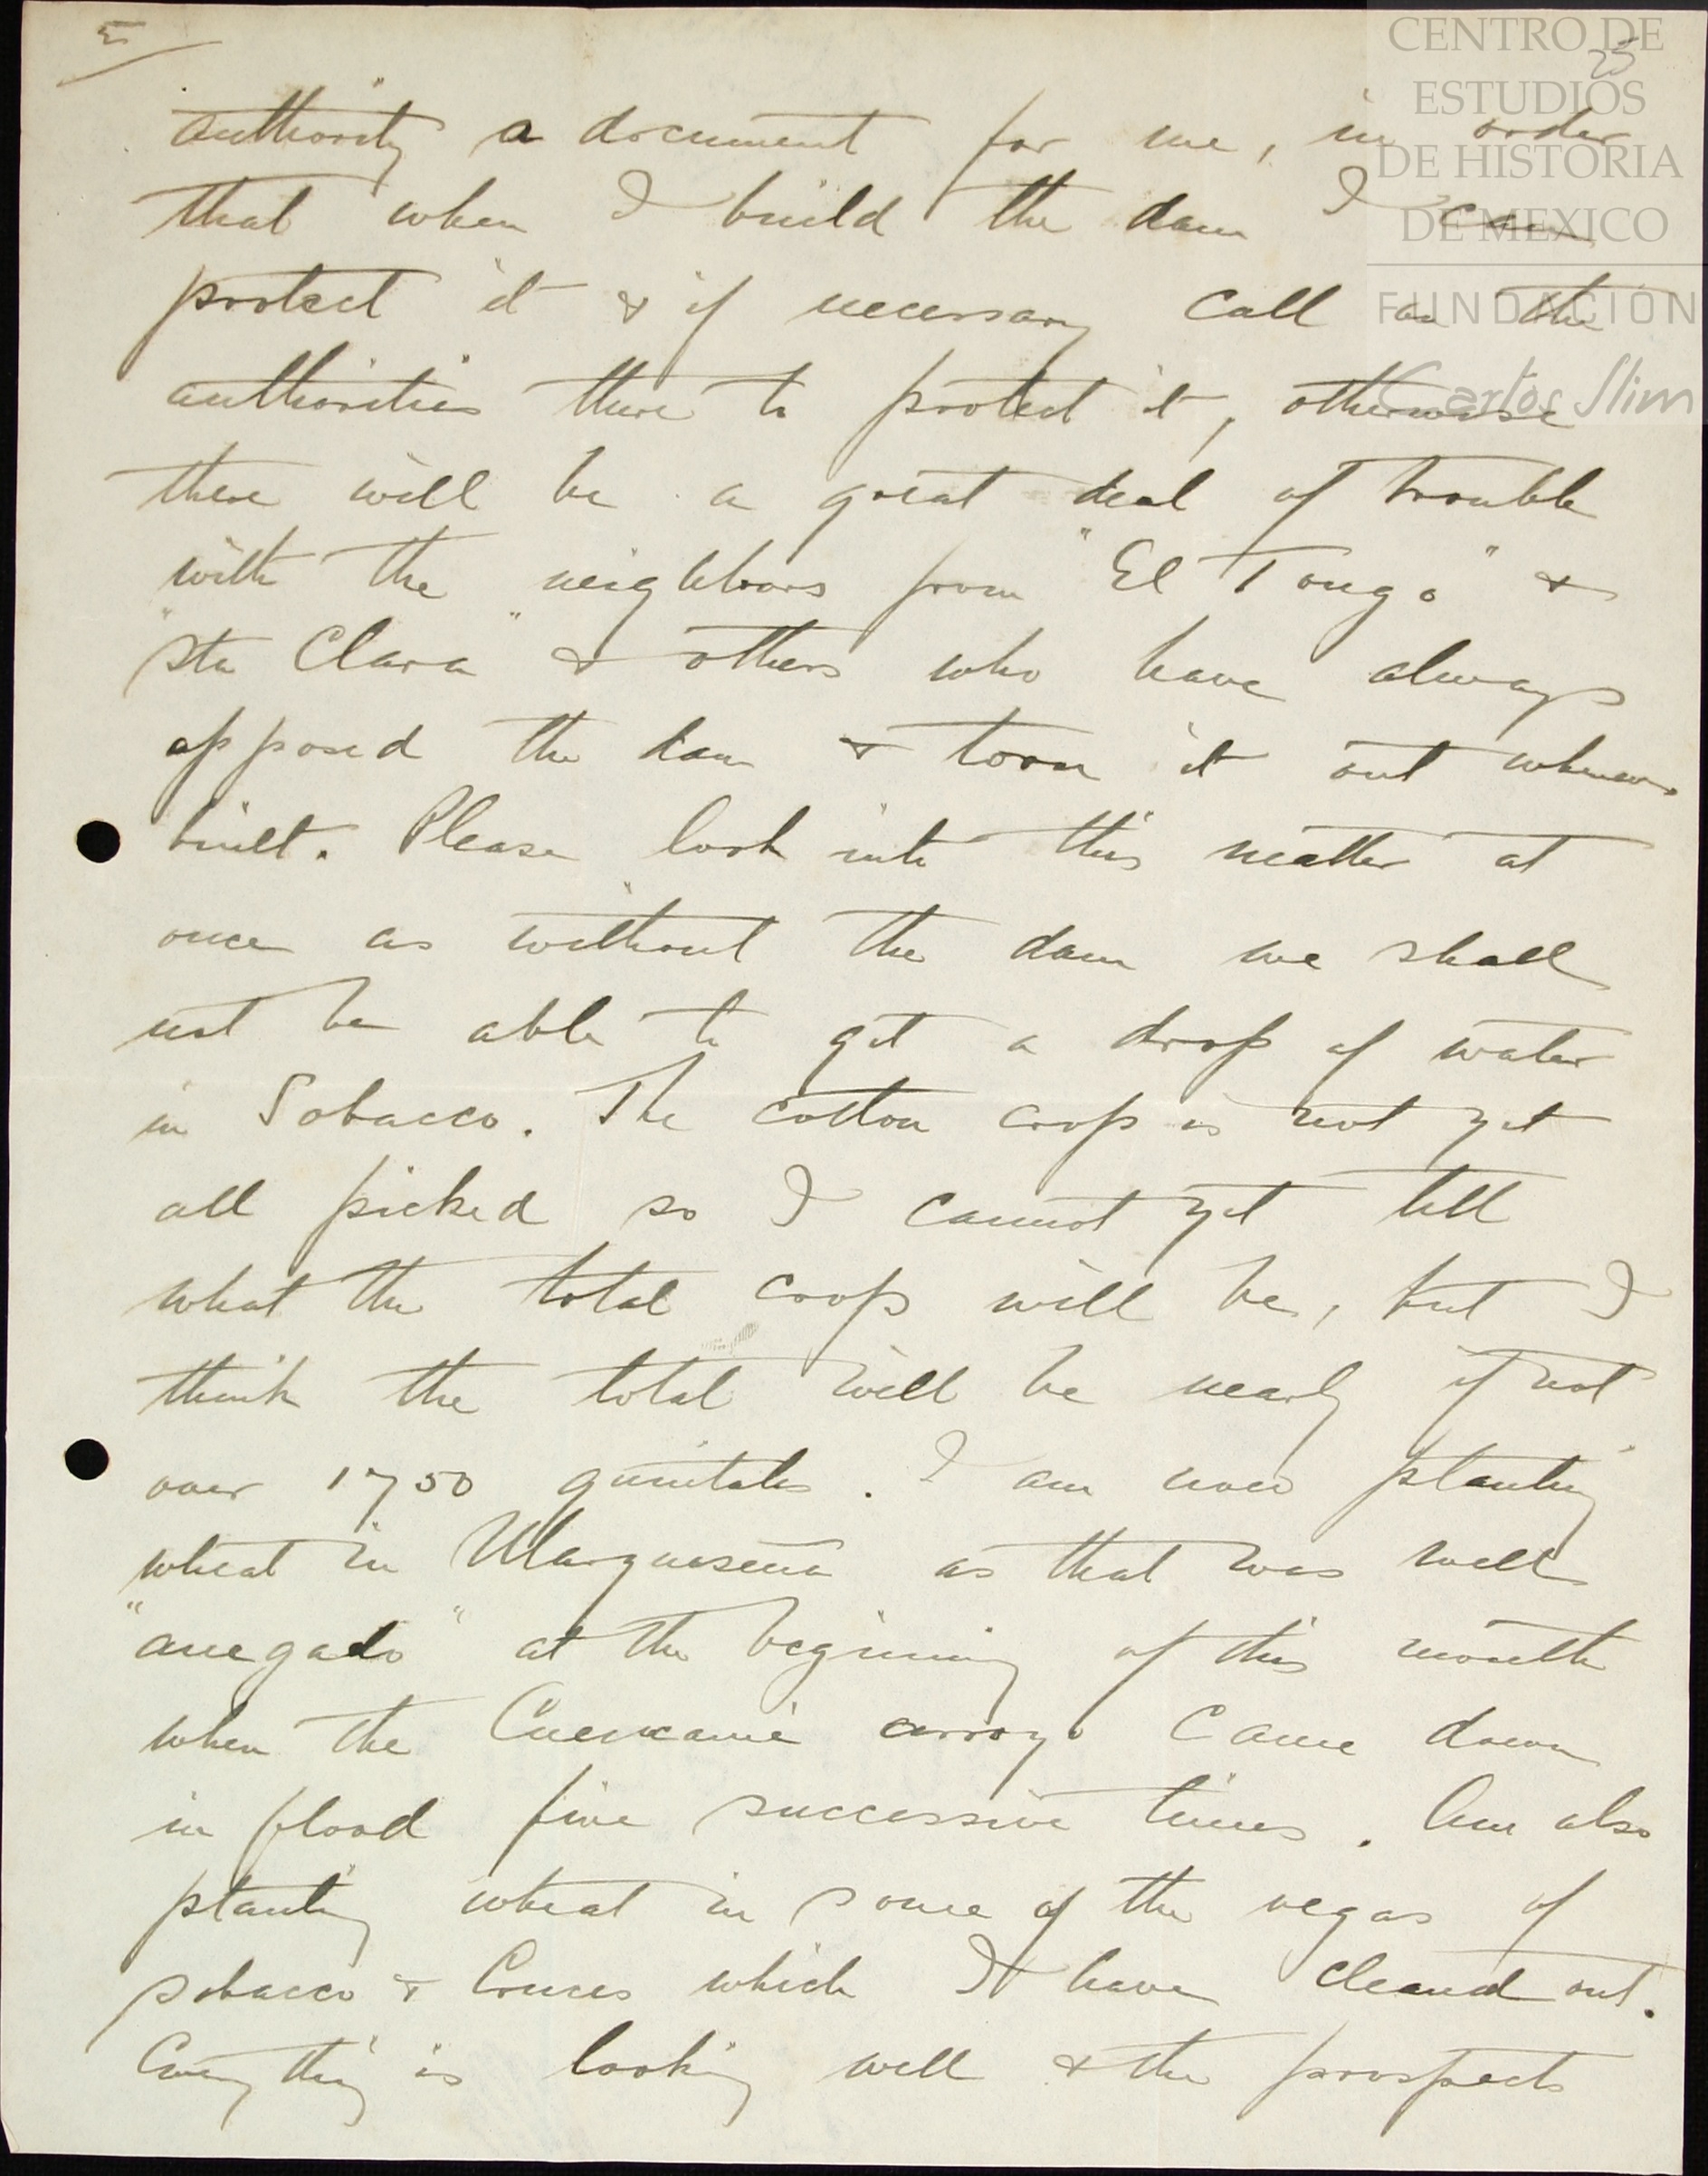 5
25
CENTRO DE
ESTUDIOS
DE HISTORIA
DE MEXICO
FUNDACIÓN
Carlos Slim
authority a document for me, in order
that when I build the dam I can
protect it & if necessary call on the
authorities there to protect it, otherwise
there will be a great deal of trouble
with the neighbors from "El Tongo" &
"Sta Clara" & others who have always
opposed the dam & torn it out whenever
built. Please look into this matter at
once as without the dam we shall
not be able to get a drop of water
in Sobacco. The cotton crop is not yet
all picked so I cannot yet tell
what the total crop will be, but I
think the total will be nearly if not
over 1750 quintales. I am now planting
wheat in Marquesena as that was well
"anegado" at the beginning of this month
when the Cuencamé arroyo came down
in flood five successive times. Am also
planting wheat in some of the vegas of
Sobacco & Cruces which I have cleaned out.
Everything is looking well & the prospects